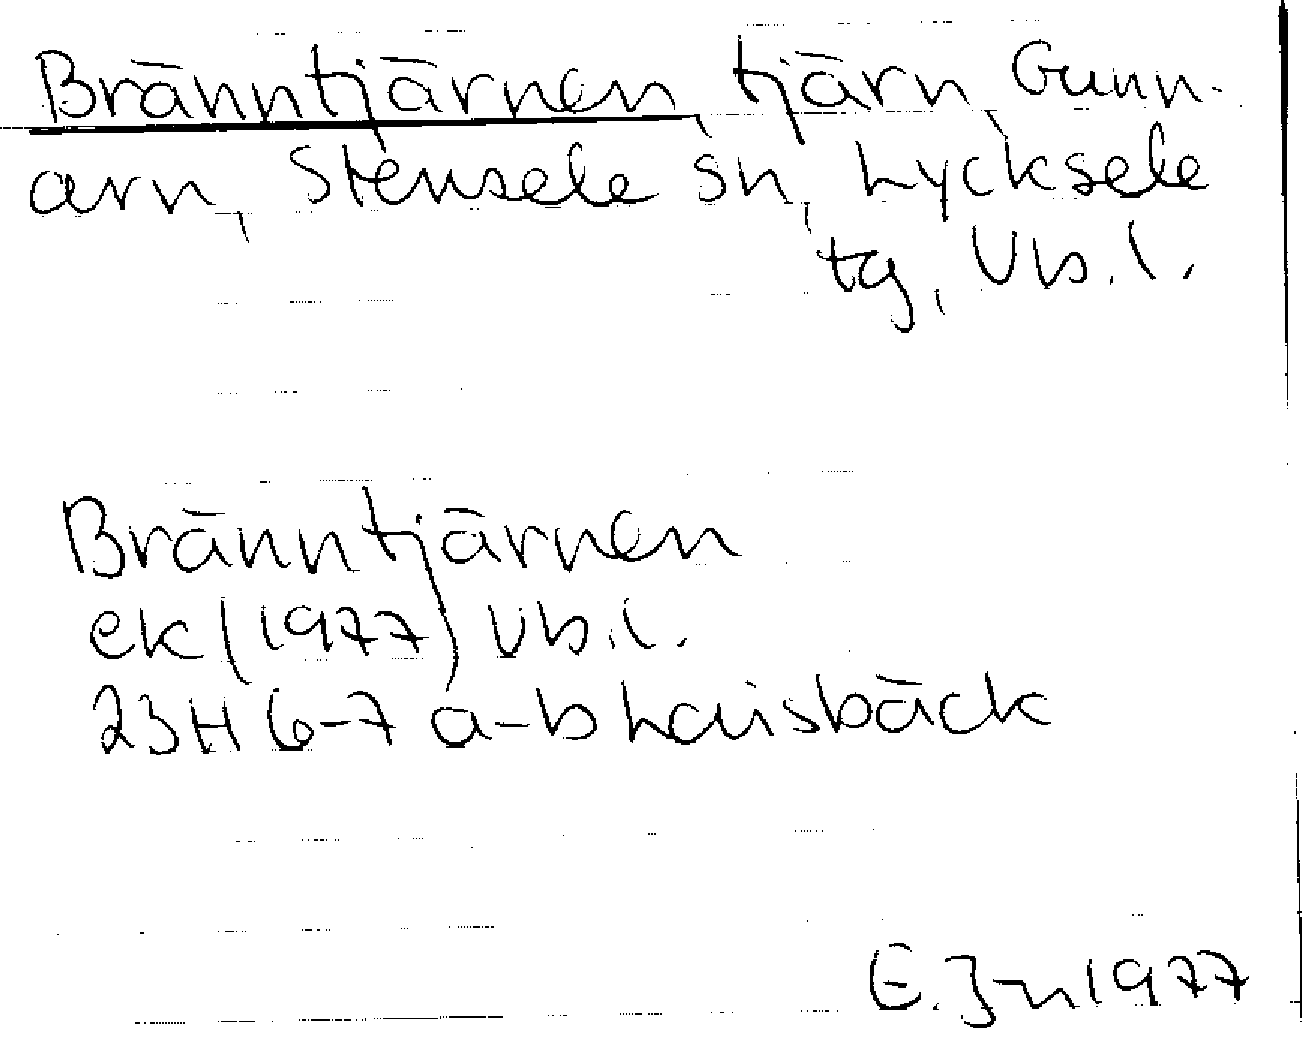 Bränntjärnen, tjärn, Gunn-
arn, Stensele sn, Lycksele
tg, Vb.l.
Bränntjärnen
ek (1977) Vb.l.
23H 6-7 a-b Laisbäck
E. J-n 1977